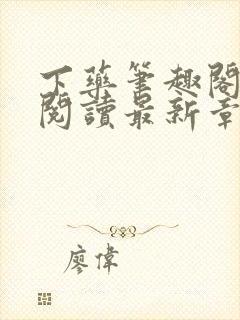 下藥筆趣閣
閱讀最新章
廖偉